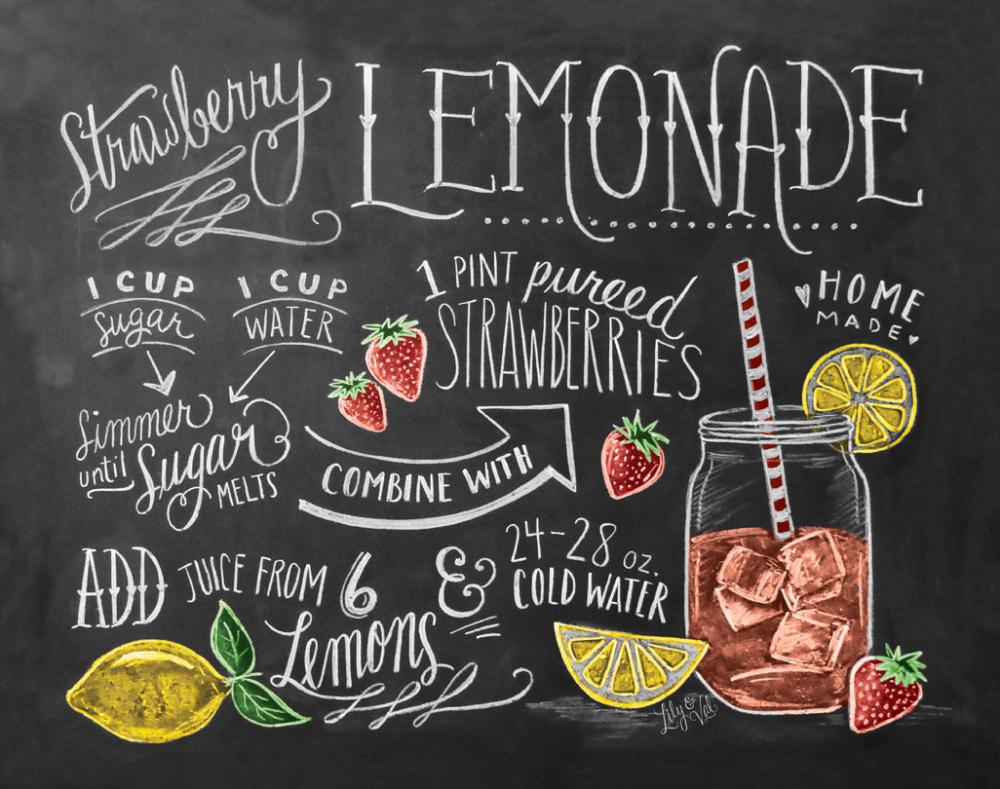 Strawberry LEMONADE
1 CUP
sugar
1 CUP
WATER
Simmer
until Sugar
MELTS
COMBINE WITH
1 PINT pureed
STRAWBERRIES
HOME
MADE
ADD JUICE FROM 6
Lemons
& 24-28 oz.
COLD WATER
Lily & Val